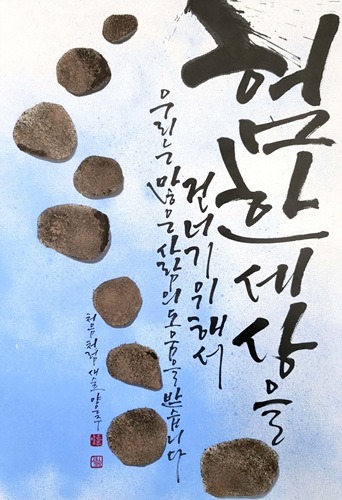 험한세상을
건너기위해서
우리는많은사람의도움을받습니다
처음처럼 새순 양홍수